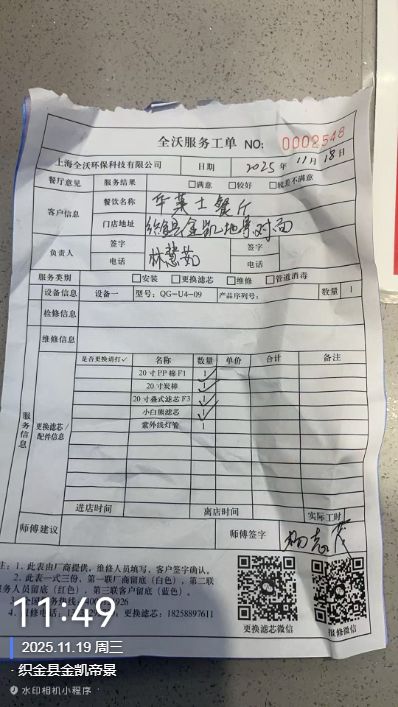 全沃服务工单 NO: 0002548
上海全沃环保科技有限公司 日期 2025年11月18日
餐厅意见 服务结果 □满意 □较好 □不满意
客户信息 餐饮名称
门店地址 织金县金凯地景对面
负责人 签字 林慧茹
电话 电话
服务类别 □安装 □更换滤芯 □维修 □管道消毒
设备信息 设备一 型号: QG-U4-09 产品序列号: 数量 1
检修信息
维修信息
服务信息
更换滤芯/配件信息
是否更换请打✓ 名称 数量 单价 合计 备注
20寸PP棉F1 1
20寸炭棒 1
20寸叠式滤芯F3 1
小白熊滤芯 1
紫外线灯管 1
进店时间 离店时间 实际工时
师傅建议 师傅签字
注: 1. 此表由厂商提供, 维修人员填写, 客户签字确认。
2. 此表一式三份, 第一联厂商留底 (白色), 第二联
服务人员留底 (红色), 第三联客户留底 (蓝色)。
更换滤芯: 18258897611
更换滤芯微信 报修微信
11:49
2025.11.19 周三
· 织金县金凯帝景
水印相机小程序